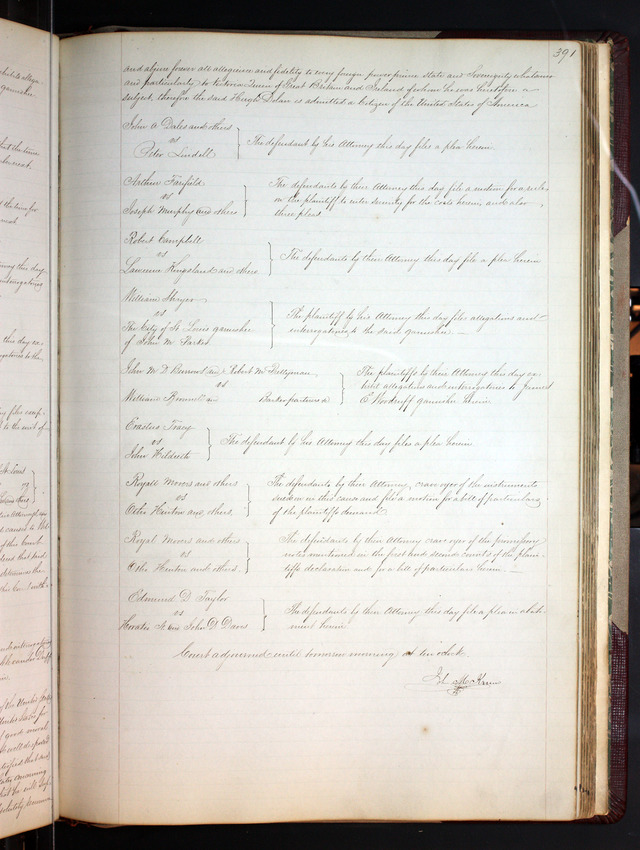 391
and abjure forever all allegiance and fidelity to every foreign power prince state and Sovereignty whatsoever
and particularly to Victoria Queen of Great Britain and Ireland of whom he was heretofore a
subject, therefore the said Hugh Dolan is admitted a Citizen of the United States of America
John A Dales and others
vs
Peter Lindell
The defendant by his Attorney this day files a plea herein.
Arthur Fairfield
vs
Joseph Murphy and others
The defendants by their Attorney this day file a motion for a rule
on the plaintiff to enter security for the costs herein, and also
three pleas.
Robert Campbell
vs
Lawrence Kingsland and others
The defendants by their Attorney this day file a plea herein
William Thayer
vs
The City of St Louis garnishee
of John M. Parker
The plaintiff by his Attorney this day files allegations and
interrogatories to the said garnishee. —
John M D Bernout and Robert M
vs
William Bennett
Barker partners &c
The plaintiffs by their Attorney this day ex-
hibit allegations and interrogatories to James
E Woodruff garnishee herein
Erastus Tracy
vs
John Hildreth
The defendant by his Attorney this day files a plea herein
Royall Moores and others
vs
Otho Hinton and others.
The defendants by their Attorney, crave oyer of the instruments
sued on in this cause and file a motion for a bill of particulars
of the plaintiffs demand
Royal Moores and others
vs
Otho Hinton and others.
The defendants by their Attorney crave oyer of the promissory
notes mentioned in the first and second counts of the plain-
tiffs declaration and for a bill of particulars herein. —
Edmund D. Taylor
vs
Horatio N. and John D. Davis
The defendants by their Attorney this day file a plea in abate-
ment herein
Court adjourned until tomorrow morning at ten oclock.